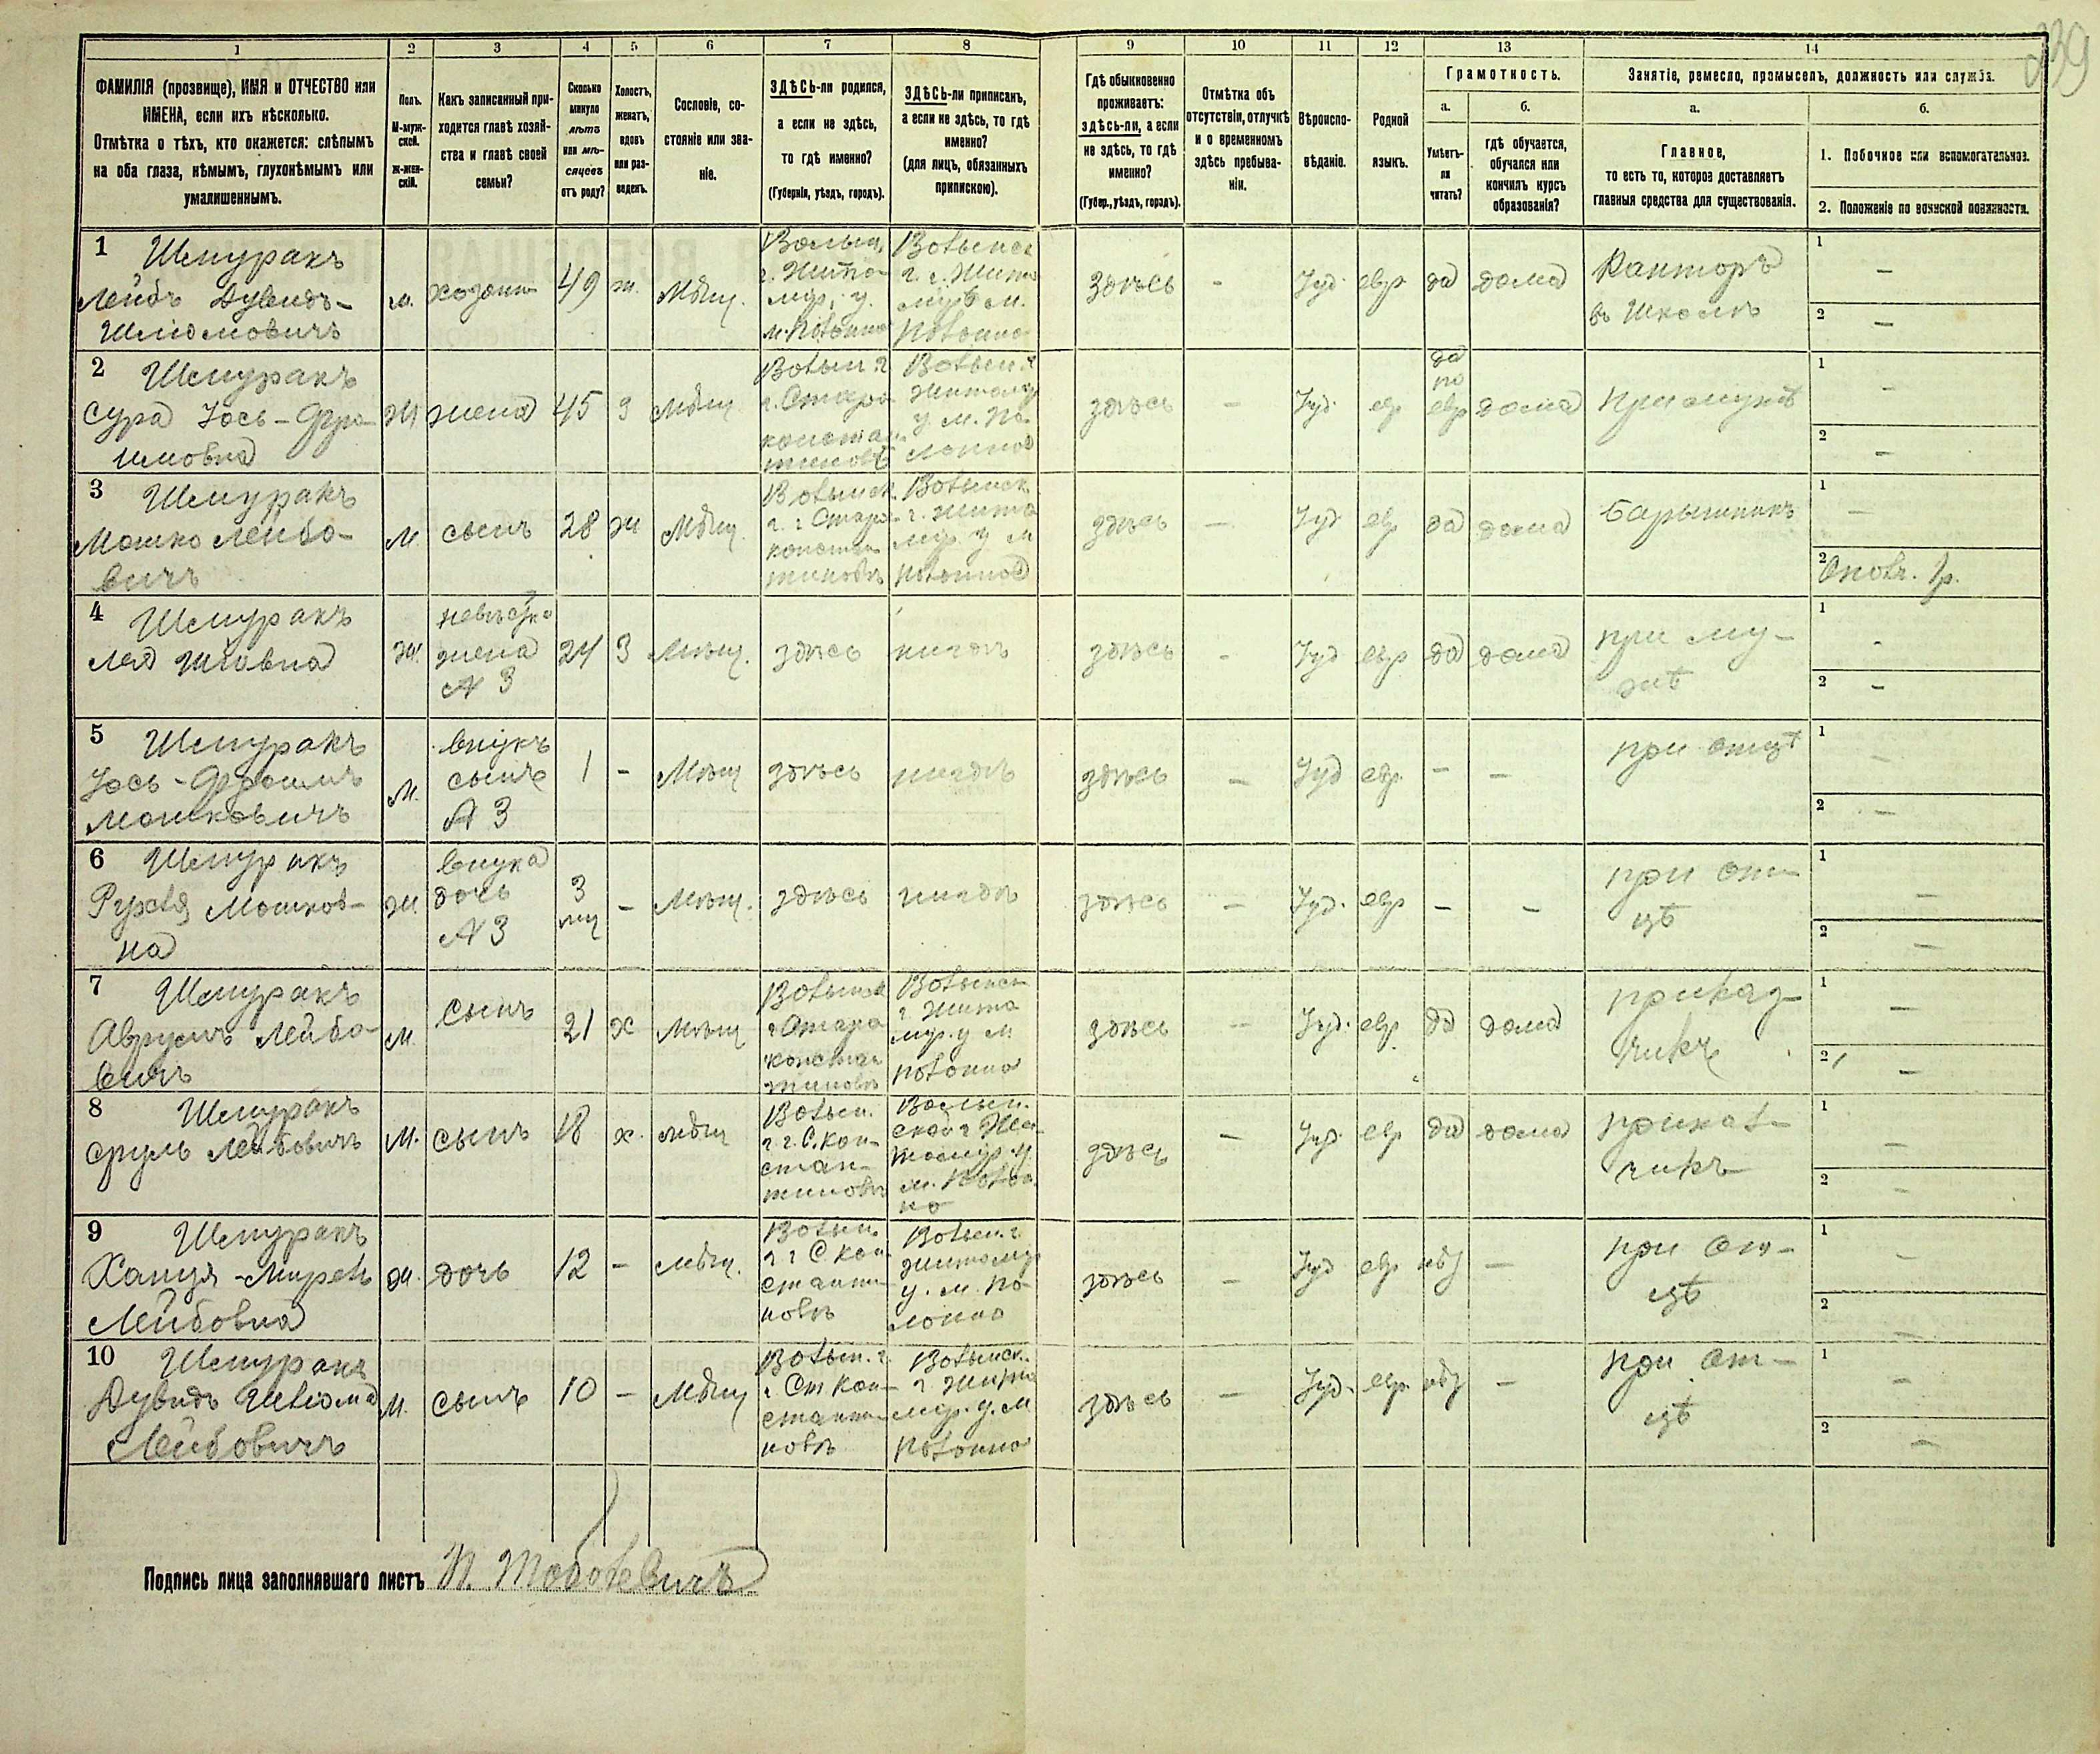 239
1 2 3 4 5 6 7 8 9 10 11 12 13 14
ФАМИЛІЯ (прозвище), ИМЯ и ОТЧЕСТВО или
ИМЕНА, если ихъ нѣсколько.
Отмѣтка о тѣхъ, кто окажется: слѣпымъ
на оба глаза, нѣмымъ, глухонѣмымъ или
умалишеннымъ.
Полъ.
М-муж-
ской.
Ж-жен-
скій.
Какъ записанный при-
ходится главѣ хозяй-
ства и главѣ своей
семьи?
Сколько
минуло
лѣтъ
или мѣ-
сяцевъ
отъ роду?
Холостъ,
женатъ,
вдовъ
или раз-
веденъ.
Сословіе, со-
стояніе или зва-
ніе.
ЗДѢСЬ-ли родился,
а если не здѣсь,
то гдѣ именно?
(Губернія, уѣздъ, городъ).
ЗДѢСЬ-ли приписанъ,
а если не здѣсь, то гдѣ
именно?
(для лицъ, обязанныхъ
припискою).
Гдѣ обыкновенно
проживаетъ:
здѣсь-ли, а если
не здѣсь, то гдѣ
именно?
(Губер., уѣздъ, городъ).
Отмѣтка объ
отсутствіи, отлучкѣ
и о временномъ
здѣсь пребыва-
ніи.
Вѣроиспо-
вѣданіе.
Родной
языкъ.
Грамотность.
а.
Умѣетъ-
ли
читать?
б.
гдѣ обучается,
обучался или
кончилъ курсъ
образованія?
Занятіе, ремесло, промыселъ, должность или служба.
а.
Главное,
то есть то, которое доставляетъ
главныя средства для существованія.
б.
1. Побочное или вспомогательное.
2. Положеніе по воинской повинности.
1 Шмуракъ
Лейбъ Дувидъ-
Шлiомовичъ
м.
хозяинъ
49
ж.
Мѣщ.
Волын.
г. Жито-
мир. у.
м. Полонно
Волынск
г. г. Жито
мир м.
Полонно
Здѣсь
-
Іуд.
евр
да
дома
Канторъ
въ Школѣ
1 -
2 -
2 Шмуракъ
Сура Іось-Фро-
имовна
ж
жена
45
з
Мѣщ
Волын г
г. Старо
констан-
тиновъ
Волын г
Житомир
у м. По-
лонно
здѣсь
-
Іуд.
евр
да
по
евр
дома
При мужѣ
1 -
2 -
3 Шмуракъ
Мошко Лейбо-
вичъ
м.
сынъ
28
ж
Мѣщ.
Волынск.
г. г Старо-
констан
тиновъ
Волынск
г. Жито
мир. у м
Полонно
здѣсь
-
Іуд
евр
да
дома
Барышникъ
1 -
2 Ополч. 1 р.
4 Шмуракъ
Лея
ж.
невѣстка
жена
№ 3
24
З
Мѣщ.
здѣсь
нигдѣ
здѣсь
-
Іуд
евр
да
дома
при му-
жѣ
1 -
2 -
5 Шмуракъ
Іось-Фроимъ
Мошковичъ
м.
внукъ
сынъ
№ 3
1
-
Мѣщ
здѣсь
нигдѣ
здѣсь
-
Іуд
евр.
-
-
при отцѣ
1 -
2 -
6 Шмуракъ
Рухля Мошков-
на
ж.
внука
дочь
№ 3
3
мц
-
Мѣщ.
здѣсь
нигдѣ
здѣсь
-
Іуд.
евр
-
-
при от-
цѣ
1 -
2 -
7 Шмуракъ
Аврумъ Лейбо-
вичъ
м
сынъ
21
х
Мѣщ
Волынск
г Старо
констан
тиновъ
Волынск
г Жито
мир. у м
Полонно
здѣсь
-
Іуд.
евр.
да
дома
приказ-
чикъ
1 -
2 -
8 Шмуракъ
Сруль Лейбовичъ
м.
сынъ
18
х.
мѣщ
Волын.
г г. С. Кон-
стан-
тиновъ
Волын.
ской г Жи-
томир. у
м. Полон
но
здѣсь
-
Іуд.
евр
да
дома
прикас-
чикъ
1 -
2 -
9 Шмуракъ
Ханця-Мирель
Лейбовна
ж.
дочь
12
-
мѣщ.
Волын.
г г С Кон
станти-
новъ
Волын. г
Житомир
у. м. По-
лонно
здѣсь
-
Іуд
евр
нѣт
-
при от-
цѣ
1 -
2 -
10 Шмуракъ
Дувидъ Шлiома
Лейбовичъ
м.
сынъ
10
-
Мѣщ
Волын. г.
г Ст Кон-
станти-
новъ
Волынск.
г Жито
мир. у. м
Полонно
здѣсь
-
Іуд.
евр.
нѣт
-
при от-
цѣ
1 -
2 -
Подпись лица заполнявшаго листъ